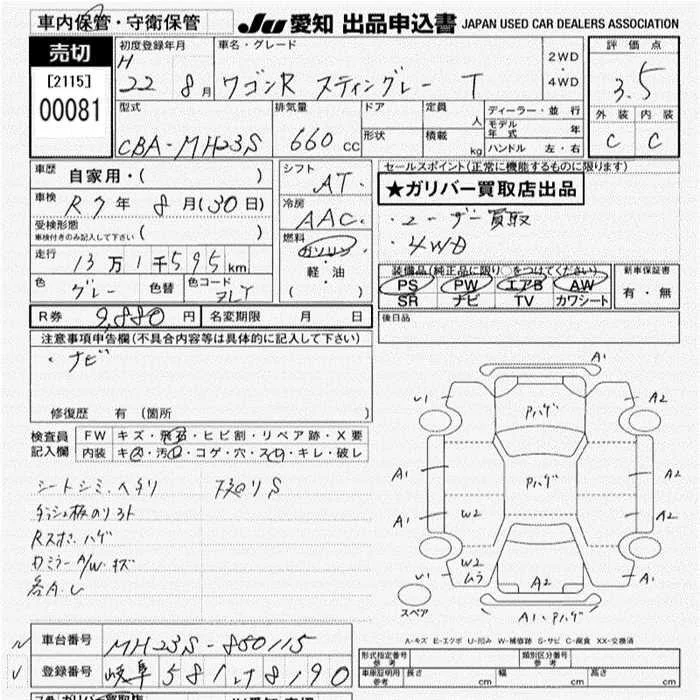 車内保管・守衛保管
JU 愛知 出品申込書 JAPAN USED CAR DEALERS ASSOCIATION
売切
[2115]
00081
初度登録年月
H 22 8月
車名・グレード
ワゴンR スティングレー T
2WD
・
4WD
評価点
3.5
外装 内装
C C
型式
CBA-MH23S
排気量
660 cc
ドア
形状
定員 人
積載 kg
ディーラー・並行
モデル年式 年
ハンドル 左・右
車歴 自家用・( )
車検 R7年 8月(30日)
受検形態
車検付きのみ記入して下さい ( )
走行 13万1千595km
色 グレー 色替 色コード ZLY
シフト AT
冷房 AAC
燃料 ガソリン・
軽・油
( )
セールスポイント(正常に機能するものに限ります)
★ガリバー買取店出品
・ユーザー買取
・4WD
装備品(純正品に限り○をつけてください)
PS PW エアB AW
SR ナビ TV カワシート
新車保証書
有・無
R券 9,880円 名変期限 月 日
後日品
注意事項申告欄(不具合内容等は具体的に記入して下さい)
・ナビ
修復歴 有 (箇所 )
検査員
記入欄
FW キズ・飛石・ヒビ割・リペア跡・X要
内装 キズ・汚れ・コゲ・穴・スレ・キレ・破レ
シートシミ、ヘタリ
ダッシュ板のリフト
Rスポ、ハゲ
ドミラーA/W、キズ
各A.U
A1
U1 Pハゲ A2
A1 Pハゲ A1
A1 W2 A1
W2
ムラ
U1 A2 A1
スペア
A1、Pハゲ
A-キズ E-エクボ U-凹み W-補修跡 S-サビ C-腐食 XX-交換済
車台番号 MH23S-860115
登録番号 岐阜 581 け 8190
型式指定番号
参考
類別区分番号
参考
車庫証明用
参考
長さ cm 幅 cm 高さ cm